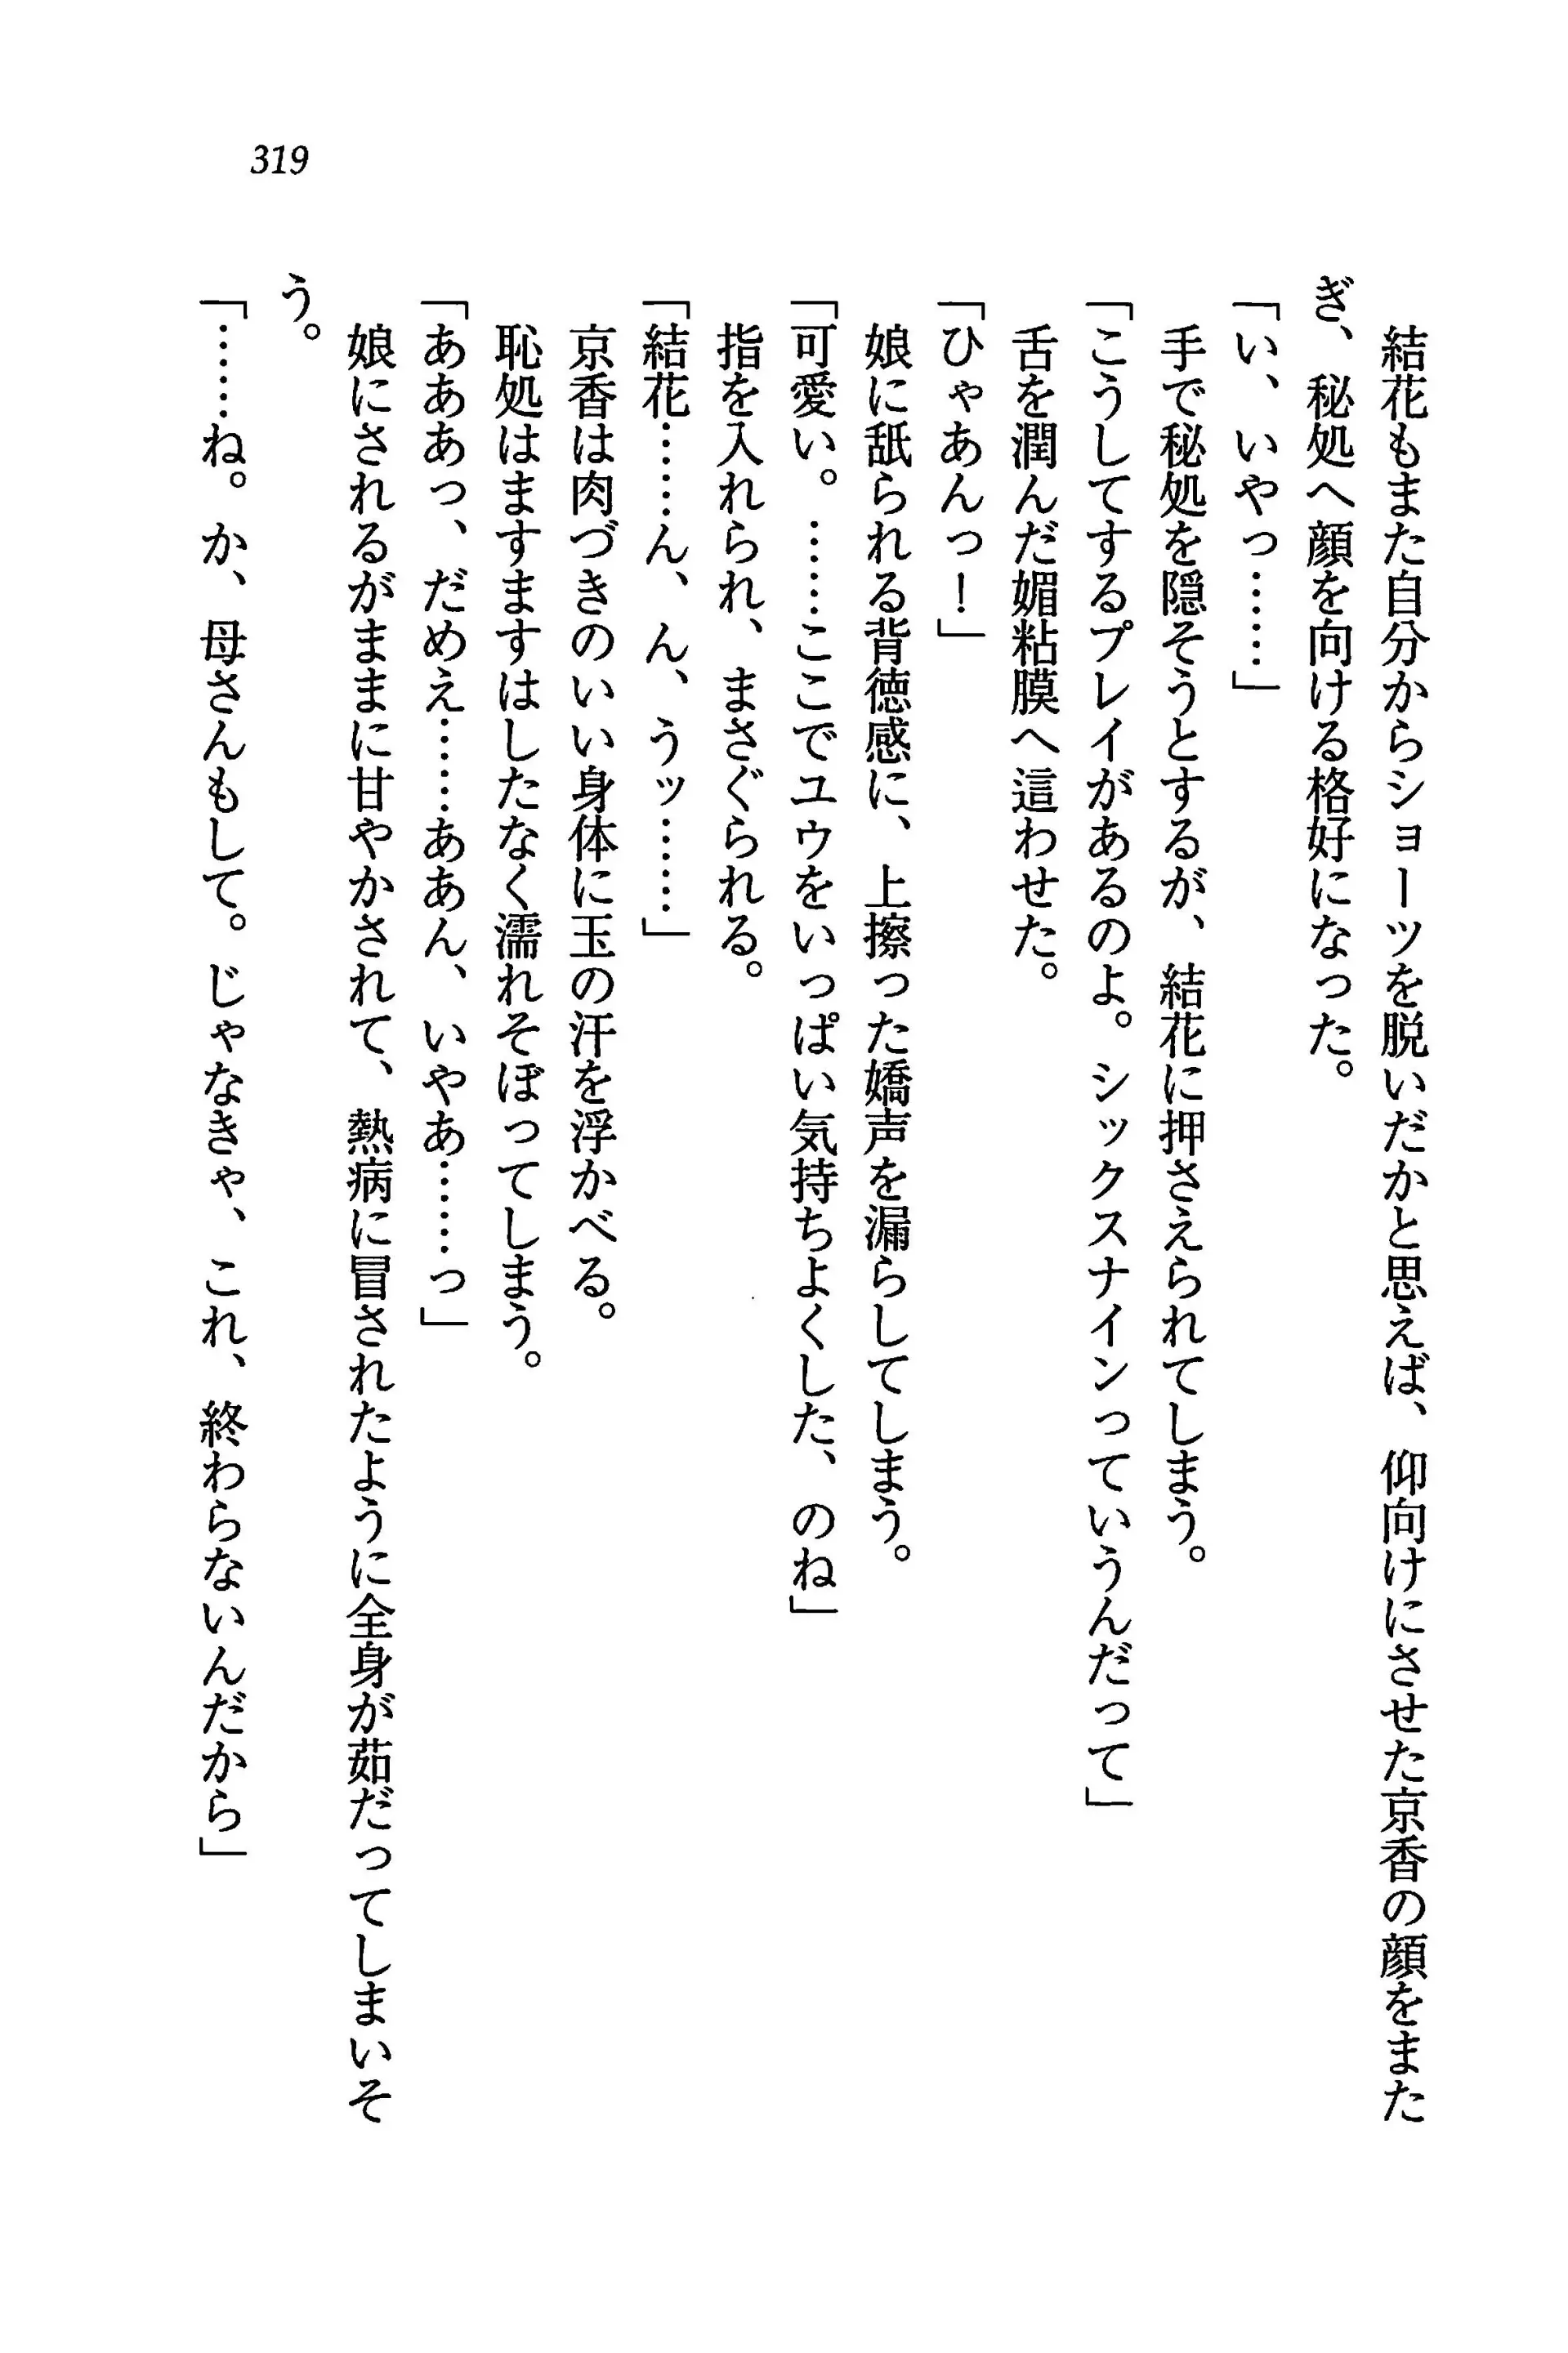 319
結花もまた自分からショーツを脱いだかと思えば、仰向けにさせた京香の顔をまた
ぎ、秘処へ顔を向ける格好になった。
「い、いやっ……」
手で秘処を隠そうとするが、結花に押さえられてしまう。
「こうしてするプレイがあるのよ。シックスナインっていうんだって」
舌を潤んだ媚粘膜へ這わせた。
「ひゃあんっ！」
娘に舐られる背徳感に、上擦った嬌声を漏らしてしまう。
「可愛い。……ここでユウをいっぱい気持ちよくした、のね」
指を入れられ、まさぐられる。
「結花……ん、ん、うッ……」
京香は肉づきのいい身体に玉の汗を浮かべる。
恥処はますますはしたなく濡れそぼってしまう。
「あああっ、だめえ……ああん、いやあ……っ」
娘にされるがままに甘やかされて、熱病に冒されたように全身が茹だってしまいそ
う。
「……ね。か、母さんもして。じゃなきゃ、これ、終わらないんだから」